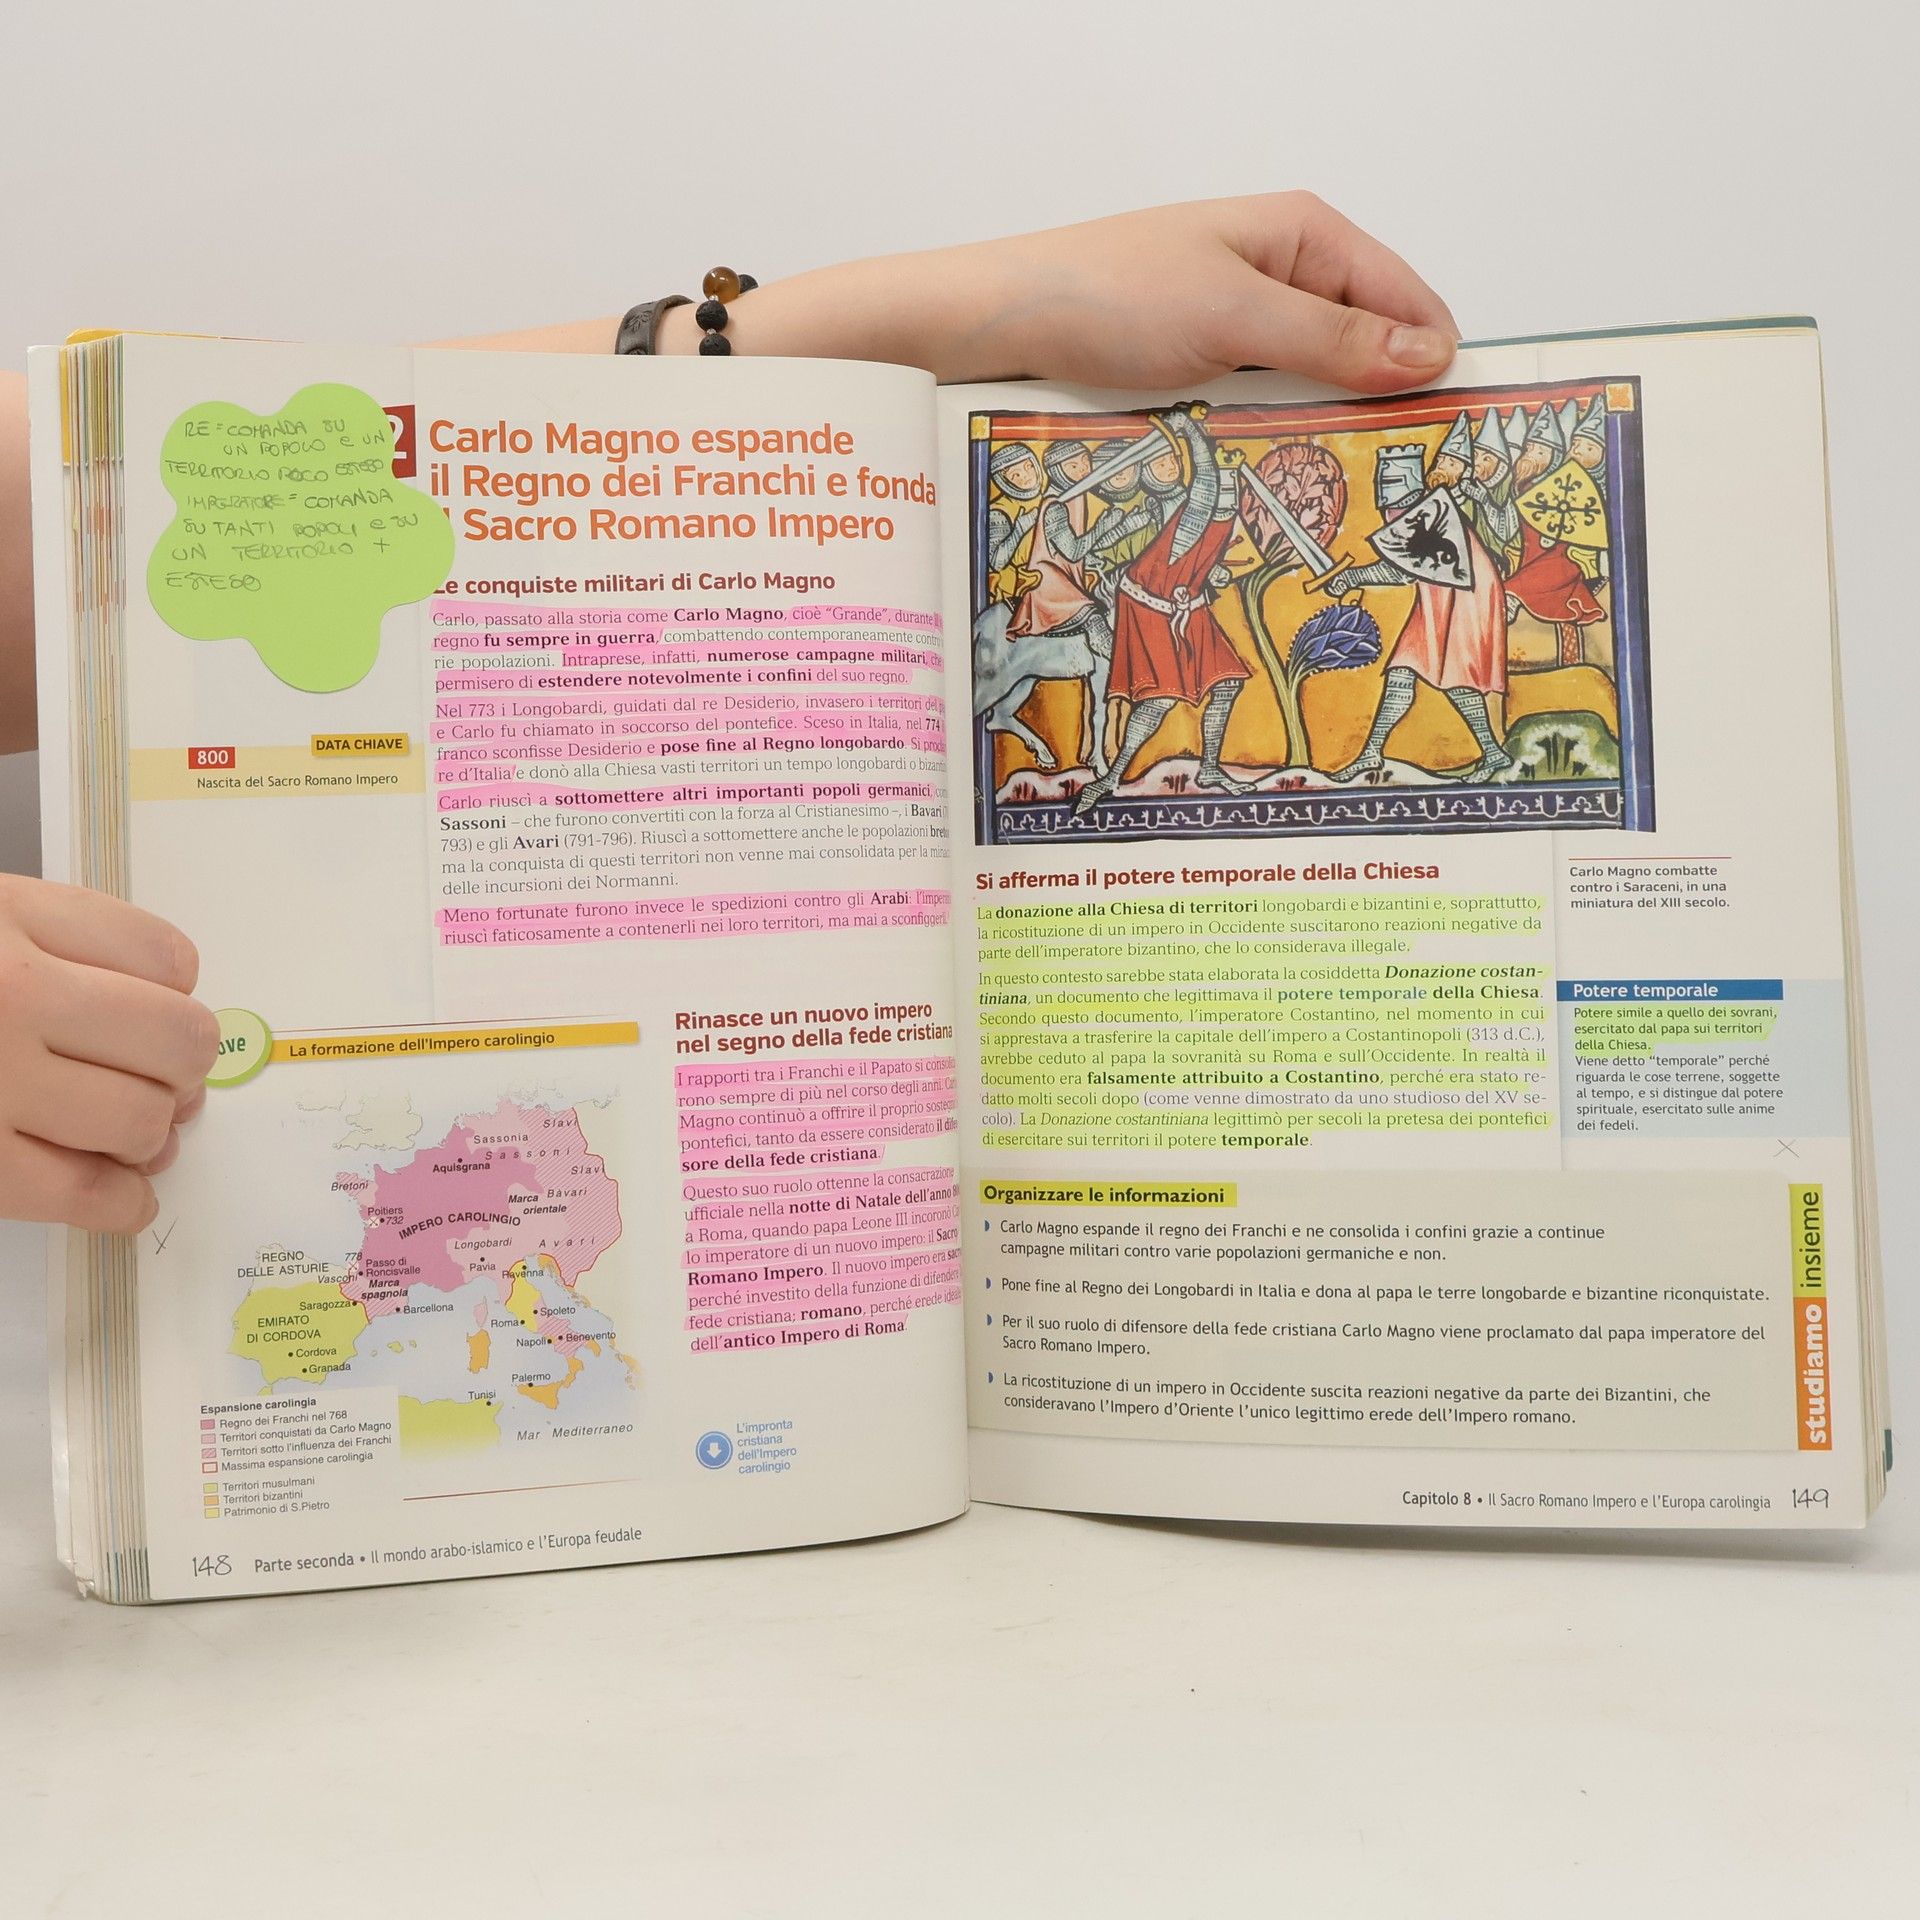 RE = COMANDA SU
UN POPOLO E UN
TERRITORIO POCO ESTESO
IMPERATORE = COMANDA
SU TANTI POPOLI E SU
UN TERRITORIO +
ESTESO
2
Carlo Magno espande
il Regno dei Franchi e fonda
Sacro Romano Impero
Le conquiste militari di Carlo Magno
Carlo, passato alla storia come Carlo Magno, cioè “Grande”, durante
regno fu sempre in guerra, combattendo contemporaneamente
rie popolazioni. Intraprese, infatti, numerose campagne militari, che
permisero di estendere notevolmente i confini del suo regno.
Nel 773 i Longobardi, guidati dal re Desiderio, invasero i territori del
e Carlo fu chiamato in soccorso del pontefice. Sceso in Italia, nel 774
franco sconfisse Desiderio e pose fine al Regno longobardo. Si
re d’Italia e donò alla Chiesa vasti territori un tempo longobardi o
Carlo riuscì a sottomettere altri importanti popoli germanici,
Sassoni – che furono convertiti con la forza al Cristianesimo –, i Bavari
793) e gli Avari (791-796). Riuscì a sottomettere anche le popolazioni
ma la conquista di questi territori non venne mai consolidata per la
delle incursioni dei Normanni.
Meno fortunate furono invece le spedizioni contro gli Arabi:
riuscì faticosamente a contenerli nei loro territori, ma mai a
DATA CHIAVE
800
Nascita del Sacro Romano Impero
ove
La formazione dell’Impero carolingio
Slavi
Sassonia
Sassoni
Aquisgrana
Slavi
Bretoni
Marca
orientale
Bàvari
Poitiers
732
IMPERO CAROLINGIO
Longobardi
Avari
REGNO
DELLE ASTURIE
778
Passo di
Roncisvalle
Vasconi
Pavia
Ravenna
Marca
spagnola
Saragozza
Barcellona
Spoleto
EMIRATO
DI CORDOVA
Roma
Napoli
Benevento
Cordova
Granada
Palermo
Tunisi
Mar Mediterraneo
Espansione carolingia
Regno dei Franchi nel 768
Territori conquistati da Carlo Magno
Territori sotto l’influenza dei Franchi
Massima espansione carolingia
Territori musulmani
Territori bizantini
Patrimonio di S.Pietro
Rinasce un nuovo impero
nel segno della fede cristiana
I rapporti tra i Franchi e il Papato si
rono sempre di più nel corso degli anni.
Magno continuò a offrire il proprio
pontefici, tanto da essere considerato il
sore della fede cristiana.
Questo suo ruolo ottenne la consacrazione
ufficiale nella notte di Natale dell’anno
a Roma, quando papa Leone III incoronò
lo imperatore di un nuovo impero: il Sacro
Romano Impero. Il nuovo impero era
perché investito della funzione di difendere
fede cristiana; romano, perché erede
dell’antico Impero di Roma.
L’impronta
cristiana
dell’Impero
carolingio
148 Parte seconda • Il mondo arabo-islamico e l’Europa feudale
Carlo Magno combatte
contro i Saraceni, in una
miniatura del XIII secolo.
Si afferma il potere temporale della Chiesa
La donazione alla Chiesa di territori longobardi e bizantini e, soprattutto,
la ricostituzione di un impero in Occidente suscitarono reazioni negative da
parte dell’imperatore bizantino, che lo considerava illegale.
In questo contesto sarebbe stata elaborata la cosiddetta Donazione costan-
tiniana, un documento che legittimava il potere temporale della Chiesa.
Secondo questo documento, l’imperatore Costantino, nel momento in cui
si apprestava a trasferire la capitale dell’impero a Costantinopoli (313 d.C.),
avrebbe ceduto al papa la sovranità su Roma e sull’Occidente. In realtà il
documento era falsamente attribuito a Costantino, perché era stato re-
datto molti secoli dopo (come venne dimostrato da uno studioso del XV se-
colo). La Donazione costantiniana legittimò per secoli la pretesa dei pontefici
di esercitare sui territori il potere temporale.
Potere temporale
Potere simile a quello dei sovrani,
esercitato dal papa sui territori
della Chiesa.
Viene detto “temporale” perché
riguarda le cose terrene, soggette
al tempo, e si distingue dal potere
spirituale, esercitato sulle anime
dei fedeli.
Organizzare le informazioni
Carlo Magno espande il regno dei Franchi e ne consolida i confini grazie a continue
campagne militari contro varie popolazioni germaniche e non.
Pone fine al Regno dei Longobardi in Italia e dona al papa le terre longobarde e bizantine riconquistate.
Per il suo ruolo di difensore della fede cristiana Carlo Magno viene proclamato dal papa imperatore del
Sacro Romano Impero.
La ricostituzione di un impero in Occidente suscita reazioni negative da parte dei Bizantini, che
consideravano l’Impero d’Oriente l’unico legittimo erede dell’Impero romano.
studiamo insieme
Capitolo 8 • Il Sacro Romano Impero e l’Europa carolingia 149